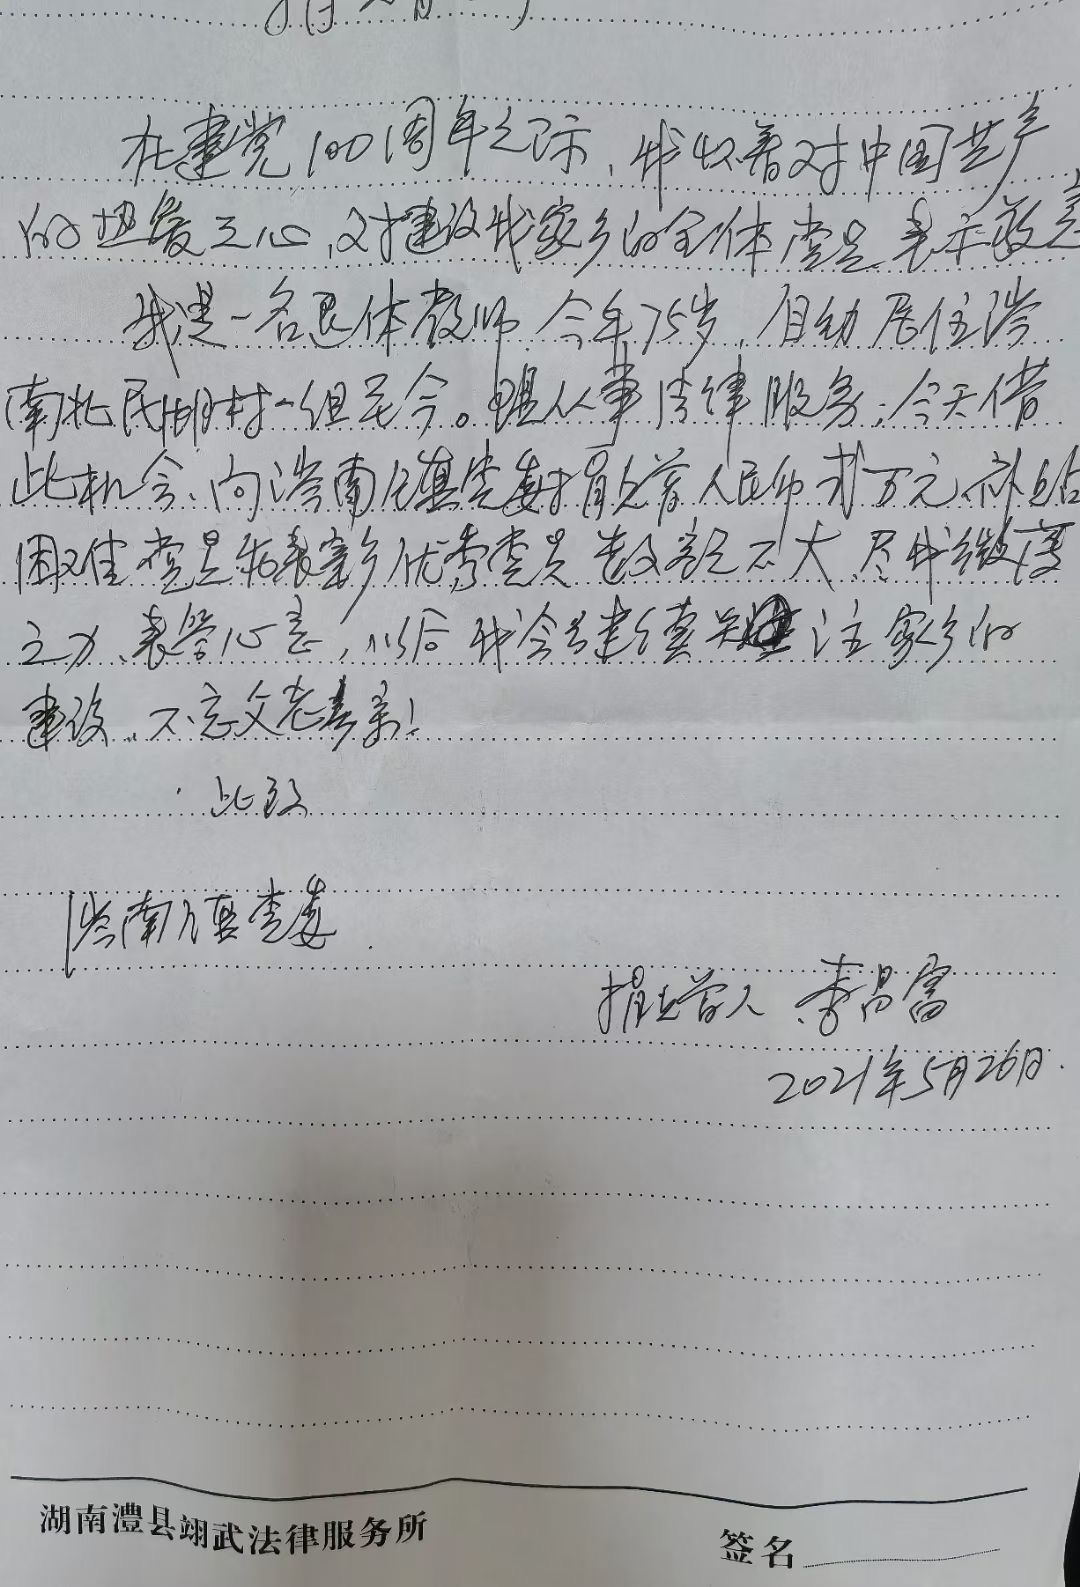 在建党100周年之际，我怀着对中国共产
的热爱之心，对建设我家乡的全体党员表示敬意
我是一名退休教师，今年75岁，自幼居住涔
南北民湖村一组至今。现从事法律服务，今天借
此机会、向涔南镇党委捐赠人民币贰万元，补贴
困难党员和表彰家乡优秀党员，数额不大，尽我微薄
之力、表学心意，以后我会继续关注家乡的
建设，不忘父老乡亲！
此致
涔南镇党委
捐赠人 李昌富
2021年5月26日.
湖南澧县翊武法律服务所
签名